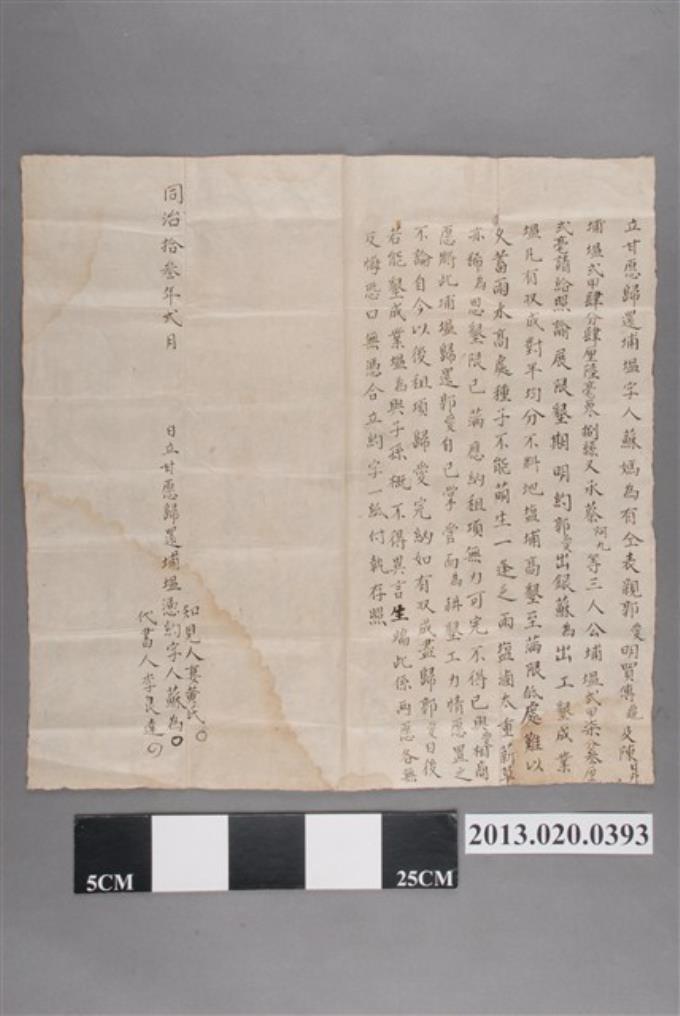 立甘愿歸還埔塭字人蘇媽為有仝表親郭愛明買傅 及陳
埔塭弍甲肆分肆厘陸毫 捌絲又承蔡阿九等三人公埔塭弍甲柒分叁厘
弍毫請給照諭展限墾期明約郭愛出銀蘇為出工墾成業
塭凡有双成對半均分不料地塩埔高墾至滿限低處難以
久蓄雨水高處種子不能萌生一逢乏雨塩滷太重蔪草
亦稀為思墾限已滿應納租項無力可完不得已與愛相商
愿將此埔塭歸還郭愛自己掌管而為耕墾工力情愿置之
不論自今以後租項歸愛完納如有双成盡歸郭愛日後
若能墾成業塭為與子孫概不得異言生端此係两愿各無
反悔恐口無憑合立約字一紙付執存照
知見人妻黃氏
同治拾叁年弍月 日立甘愿歸還埔塭憑約字人蘇為
代書人李良達
5CM
25CM
2013.020.0393